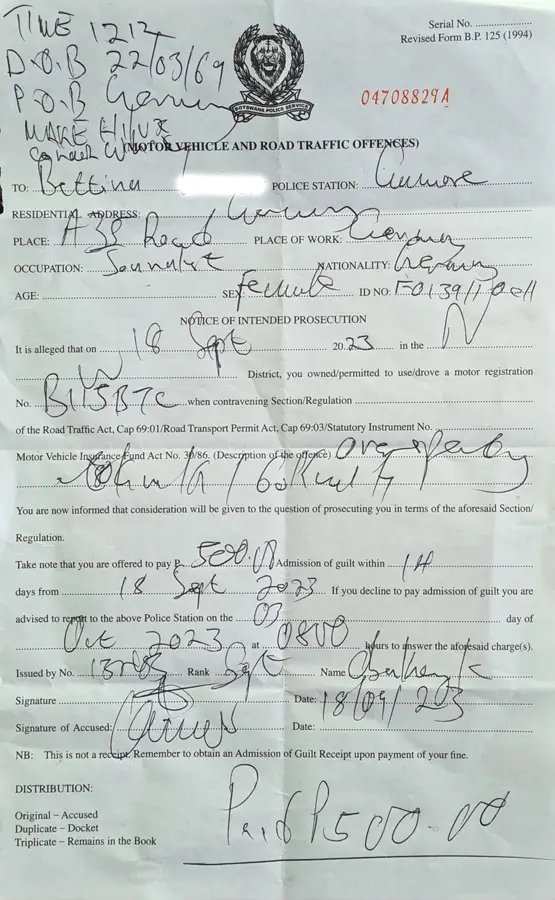 TIME 1212
D.O.B 22/03/69
P.O.B
MAKE HILUX
Serial No.
Revised Form B.P. 125 (1994)
BOTSWANA POLICE SERVICE
04708829A
(MOTOR VEHICLE AND ROAD TRAFFIC OFFENCES)
TO: Bettina POLICE STATION:
RESIDENTIAL ADDRESS: Germany
PLACE: A38 Road PLACE OF WORK: Germany
OCCUPATION: NATIONALITY: Germany
AGE: SEX Female ID NO:
NOTICE OF INTENDED PROSECUTION
It is alleged that on 18 Sept 2023 in the N
W District, you owned/permitted to use/drove a motor registration
No. B115BTC when contravening Section/Regulation
of the Road Traffic Act, Cap 69:01/Road Transport Permit Act, Cap 69:03/Statutory Instrument No.
Motor Vehicle Insurance Fund Act No. 30/86. (Description of the offence)
You are now informed that consideration will be given to the question of prosecuting you in terms of the aforesaid Section/
Regulation.
Take note that you are offered to pay P 500.00 Admission of guilt within 14
days from 18 Sept 2023 If you decline to pay admission of guilt you are
advised to report to the above Police Station on the 03 day of
Oct 2023 at 0800 hours to answer the aforesaid charge(s).
Issued by No. Rank Sgt Name
Signature Date: 18/09/203
Signature of Accused: Date:
NB: This is not a receipt. Remember to obtain an Admission of Guilt Receipt upon payment of your fine.
DISTRIBUTION:
Original – Accused
Duplicate – Docket
Triplicate – Remains in the Book
Paid P500.00